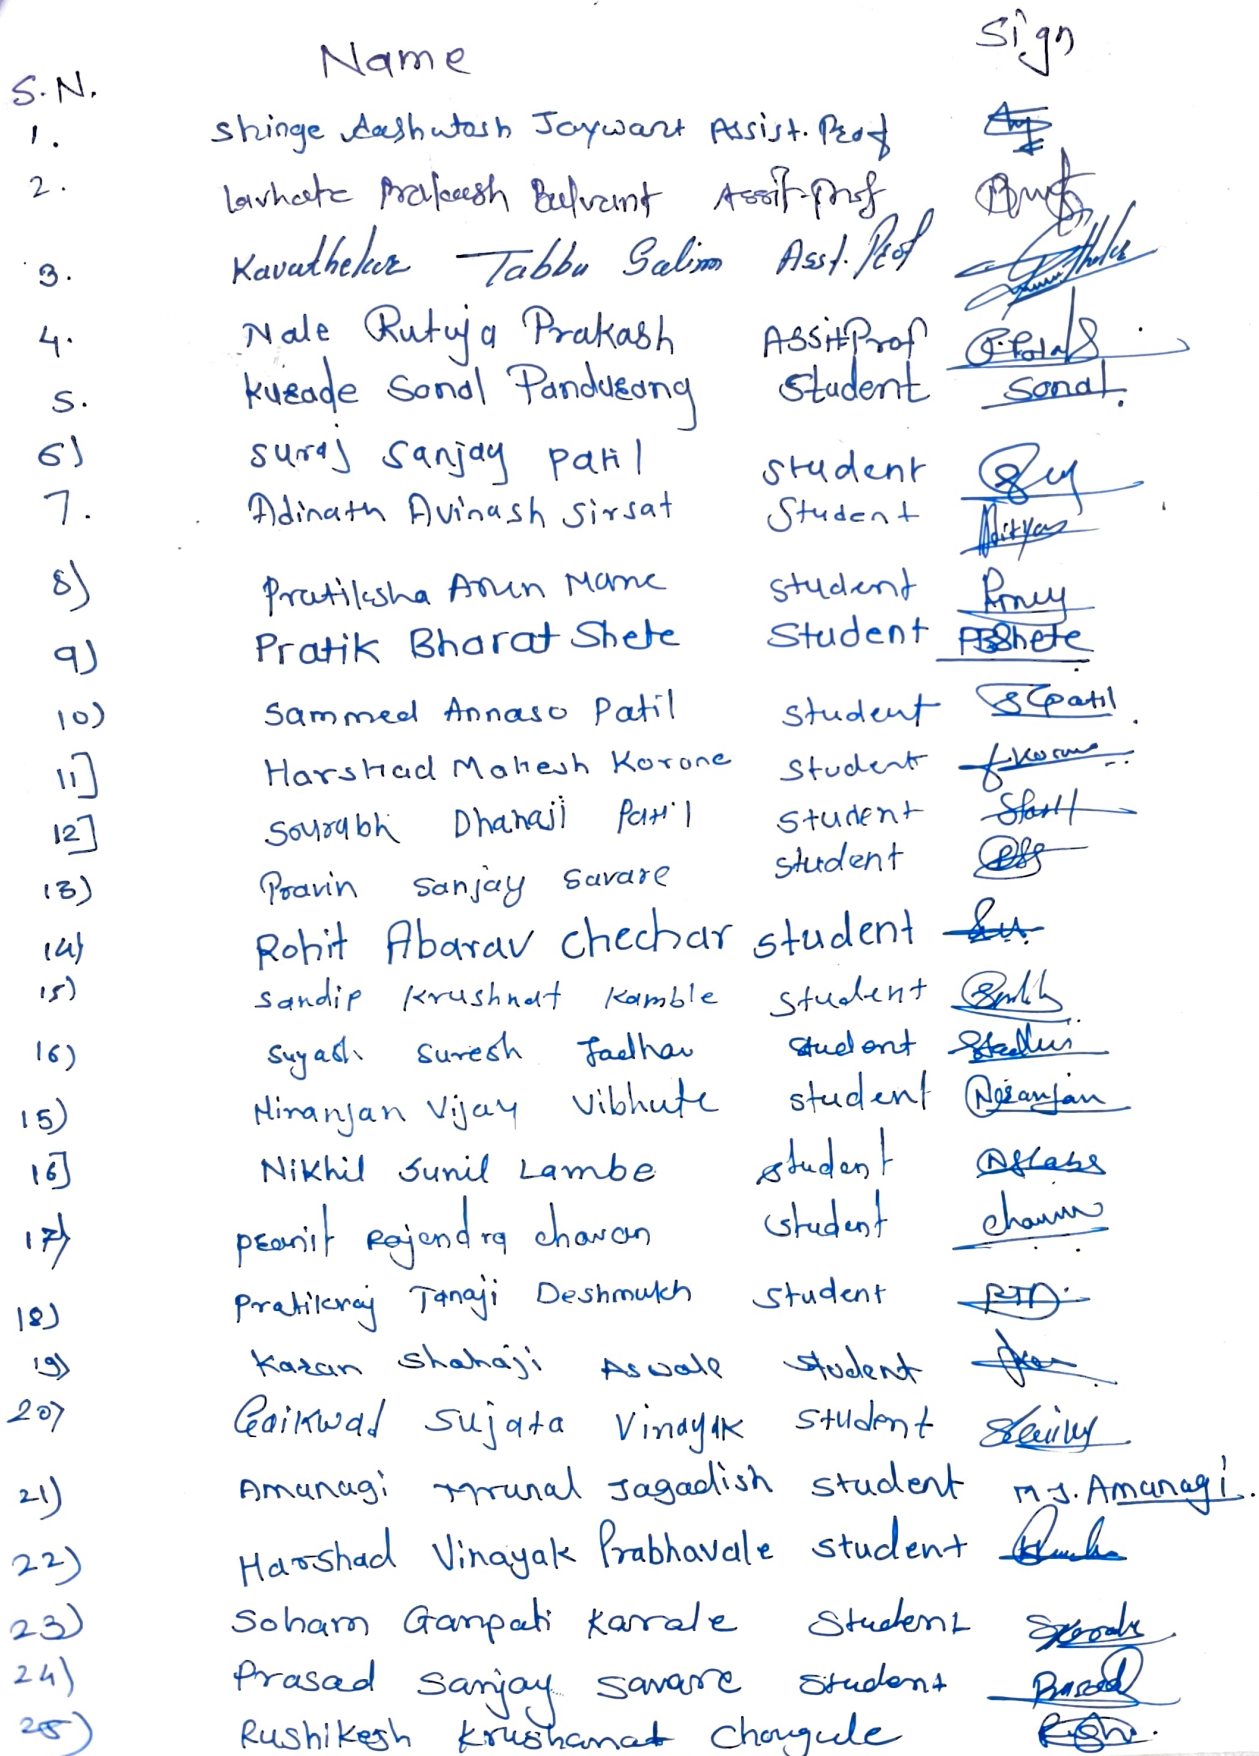 S.N. Name Sign
1. Shinge Aashutosh Jaywant Assist. Prof
2. Lavhate Prakash Balvant Assit-Prof
3. Kavathekar Tabbu Salim Asst. Prof
4. Nale Rutuja Prakash AssitProf
5. Kurade Sonal Pandurang Student Sonal.
6) Suraj Sanjay Patil Student
7. Adinath Avinash Sirsat Student
8) Pratiksha Arun Mane Student
9) Pratik Bharat Shete Student PBShete
10) Sammed Annaso Patil Student SApatil
11] Harshad Mahesh Korone Student
12] Sourabh Dhanaji Patil Student
13) Pravin Sanjay Savare Student
14) Rohit Abarav Chechar Student
15) Sandip Krushnat Kamble Student
16) Suyash Suresh Jadhav Student
15) Niranjan Vijay Vibhute Student Niranjan
16] Nikhil Sunil Lambe Student
17) Pranit Rajendra Chavan Student
18) Pratikraj Tanaji Deshmukh Student PTD.
19) Karan Shahaji Aswale Student
20) Gaikwad Sujata Vinayak Student
21) Amanagi Mrunal Jagadish Student M J. Amanagi.
22) Harshad Vinayak Prabhavale Student
23) Soham Ganpati Karale Student
24) Prasad Sanjay Savare Student Prasad
25) Rushikesh Krushanat Chougule